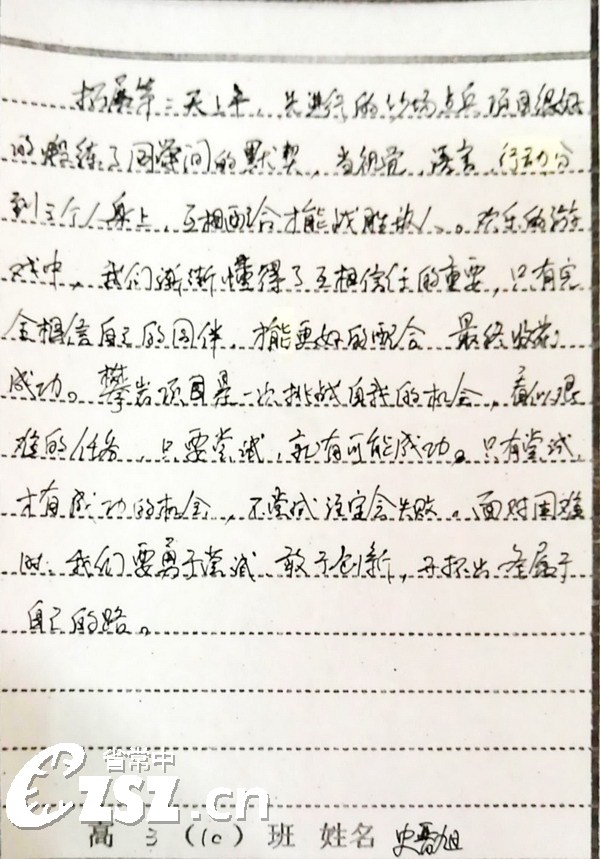 拓展第三天上午，先进行的沙场点兵项目很好
的锻练了同学间的默契，当视觉，语言，行动分
到三个人身上，互相配合才能战胜敌人。欢乐的游
戏中，我们渐渐懂得了互相信任的重要，只有完
全相信自己的同伴，才能更好的配合，最终收获
成功。攀岩项目是一次挑战自我的机会，看似艰
难的任务，只要尝试，就有可能成功。只有尝试，
才有成功的机会，不尝试注定会失败。面对困难
时，我们要勇于尝试，敢于创新，开拓出条属于
自己的路。
省常中
CZSZ.cn
高 3 (10) 班 姓名 史